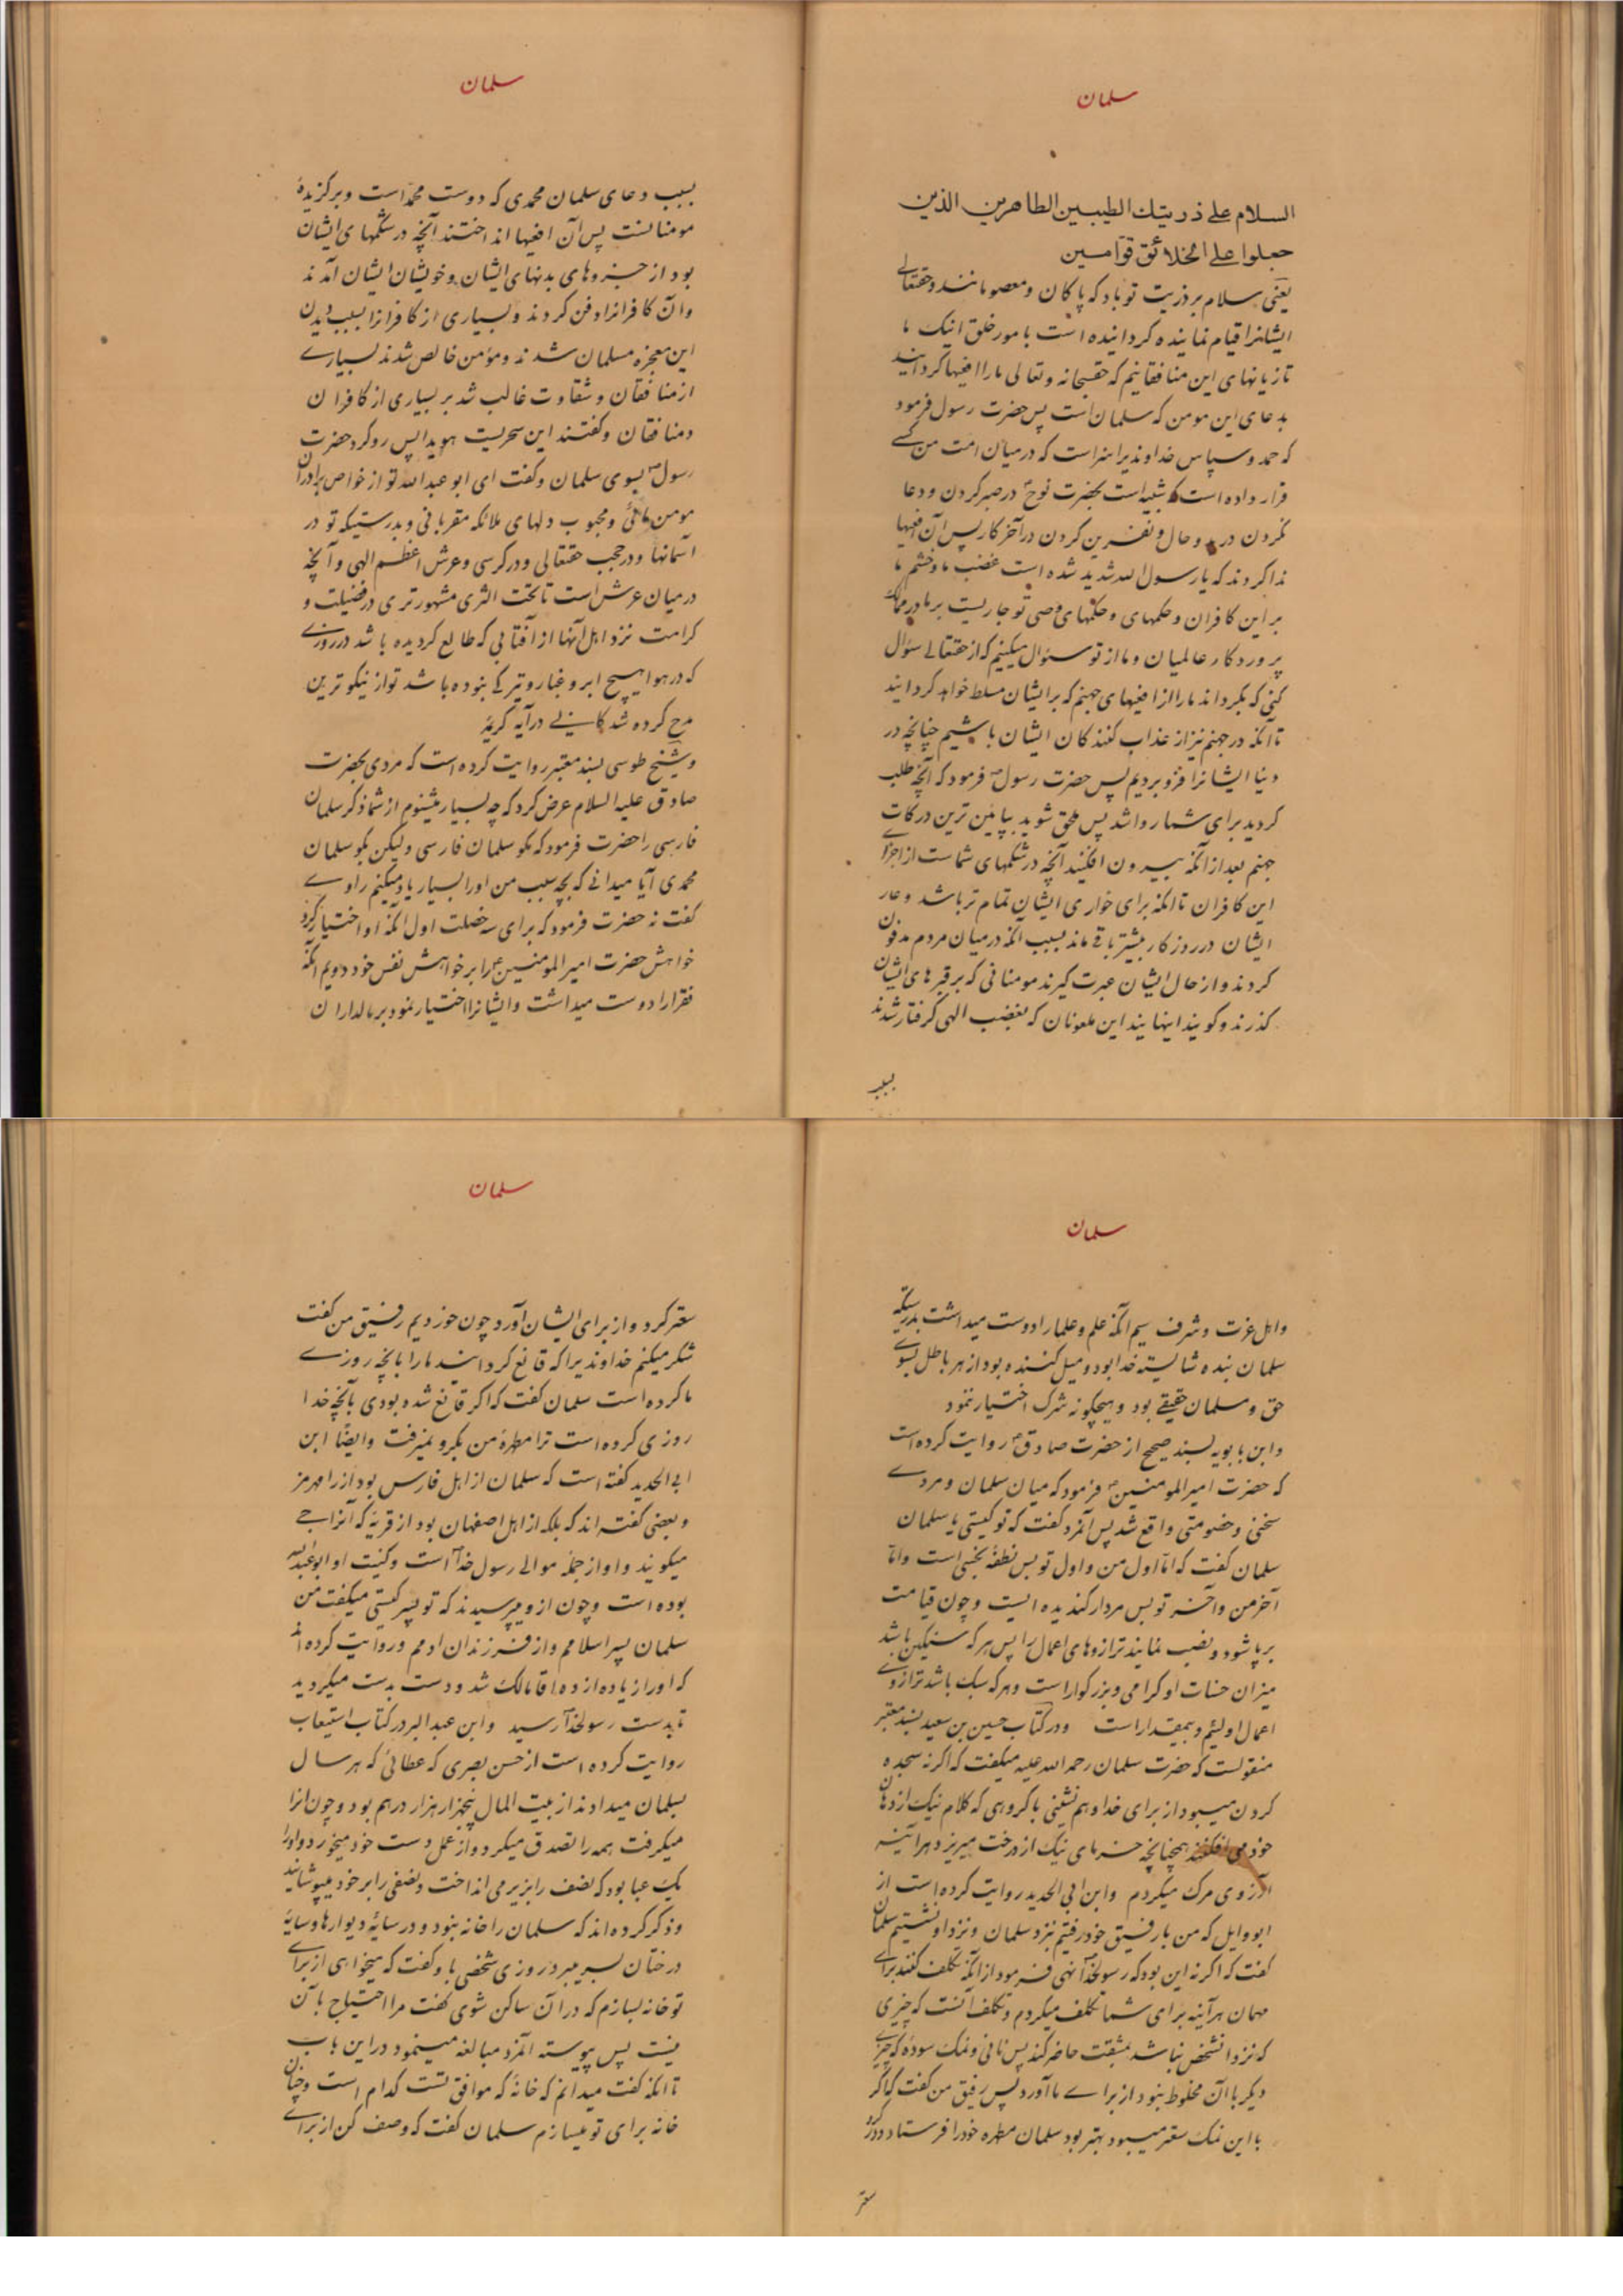 سلمان
السلام علی ذریتك الطیبین الطاهرین الذین
جعلوا علی الخلائق قوامین
یعنی سلام بر ذریت تو باد که پاکان و معصومانند و حقتعالی
ایشانرا قیام نماینده کردانیده است بامور خلق اینک ما
تازیانهای این منافقانیم که حقسبحانه و تعالی ما را افعیها کردانید
بدعای این مومن که سلمان است پس حضرت رسول فرمود
که حمد و سپاس خداوندیرا سزاست که درمیان امت من کسے
قرار داده است که شبیه است بحضرت نوح ع در صبر کردن و دعا
نکردن در و حال و نفرین کردن در آخر کار پس آن افعیها
ندا کردند که یا رسول الله شدید شده است غضب ما و خشم ما
بر این کافران و حکمهای و حکمهای وصی تو جاریست بر ما در ممالک
پروردکار عالمیان و ما از تو سئوال میکنیم که از حقتعالے سؤال
کنی که بکرداند ما را از افعیهای جهنم که بر ایشان مسلط خواهد کردانید
تا آنکه در جهنم نیز از عذاب کنندکان ایشان باشیم چنانچه در
دنیا ایشانرا فرو بردیم پس حضرت رسول ص فرمود که آنچه طلب
کردید برای شما روا شد پس ملحق شوید بپایئن ترین درکات
جهنم بعد از آنکه بیرون افکنید آنچه در شکمهای شماست از اجزای
این کافران تا آنکه برای خواری ایشان تمام تر باشد و عار
ایشان در روزکار بیشتر باقے ماند بسبب آنکه درمیان مردم مدفون
کردند و از حال ایشان عبرت کیرند مومنانی که بر قبرهای ایشان
کذرند و کویند اینهایند این ملعونان که بغضب الهی کرفتار شدند
بسبب
سلمان
بسبب دعای سلمان محمدی که دوست محمد است و برکزیدۀ
مومنانست پس آن افعیها انداختند آنچه در شکمهای ایشان
بود از جزوهای بدنهای ایشان و خویشان ایشان آمدند
و آن کافرانرا دفن کردند و بسیاری از کافرانرا بسبب دیدن
این معجزه مسلمان شدند و مؤمن خالص شدند بسیارے
از منافقان و شقاوت غالب شد بر بسیاری از کافران
و منافقان و کفتند این سحریست هویدا پس رو کرد حضرت
رسول ص بسوی سلمان و کفت ای ابو عبد الله تو از خواص برادران
مومن مائی و محبوب دلهای ملائکه مقربانی و بدرستیکه تو در
آسمانها و در حجب حقتعالی و در کرسی و عرش اعظم الهی و آنچه
درمیان عرش است تا تحت الثری مشهورتری در فضیلت و
کرامت نزد اهل آنها از آفتابی که طالع کردیده باشد در روزے
که در هوا هیچ ابر و غبار و تیرکے نبوده باشد تو از نیکوترین
مدح کرده شدکانے در آیه کریمۀ
و شیخ طوسی بسند معتبر روایت کرده است که مردی بحضرت
صادق علیه السلام عرض کرد که چه بسیار میشنوم از شما ذکر سلمان
فارسی را حضرت فرمود که مکو سلمان فارسی ولیکن بکو سلمان
محمدی آیا میدانے که بچه سبب من اورا بسیار یاد میکنم راوے
کفت نه حضرت فرمود که برای سه خصلت اول آنکه او اختیار کرد
خواهش حضرت امیر المومنین ع را بر خواهش نفس خود دویم آنکه
فقرا را دوست میداشت و ایشانرا اختیار نمود بر مالداران
سلمان
و اهل عزت و شرف سیم آنکه علم و علما را دوست میداشت بدرستیکه
سلمان بنده شایسته خدا بود و میل کننده بود از هر باطل بسوے
حق و مسلمان حقیقے بود و هیچکونه شرک اختیار ننمود
و ابن بابویه بسند صحیح از حضرت صادق ع روایت کرده است
که حضرت امیر المومنین ع فرمود که میان سلمان و مردے
سخنی و خصومتی واقع شد پس آنمرد کفت که تو کیستی یا سلمان
سلمان کفت که اما اول من و اول تو پس نطفه نجسی است و اما
آخر من و آخر تو پس مردار کندیده ایست و چون قیامت
برپا شود و نصب نمایند ترازوهای اعمال را پس هر که سنکین باشد
میزان حسنات او کرامی و بزرکوار است و هر که سبک باشد ترازوے
اعمال او لئیم و بیمقدار است و در کتاب حسین بن سعید بسند معتبر
منقولست که حضرت سلمان رحمه الله علیه میکفت که اکر نه سجده
کردن میبود از برای خدا و همنشینی با کروهی که کلام نیک از دهان
خود می افکنند همچنانچه خرمای نیک از درخت میریزد هرآینه
آرزوی مرک میکردم و ابن ابی الحدید روایت کرده است از
ابو وایل که من با رفیق خود رفتیم نزد سلمان و نزد او نشستیم سلمان
کفت که اکر نه این بود که رسولخدا نهی فرمود از آنکه تکلف کنند برای
مهمان هرآینه برای شما تکلف میکردم و تکلف آنست که چیزی
که نزد آنشخص نباشد بمشقت حاضر کند پس نانی و نمک سوده که چیزے
دیکر با آن مخلوط نبود از برای ما آورد پس رفیق من کفت که اکر
با این نمک سعتر میبود بهتر بود سلمان مطهره خود را فرستاد و در کرو
سعتر
سلمان
سعتر کرد و از برای ایشان آورد چون خوردیم رفیق من کفت
شکر میکنم خداوندیرا که قانع کردانید ما را بآنچه روزے
ما کرده است سلمان کفت که اکر قانع شده بودی بآنچه خدا
روزی کرده است ترا مطهرۀ من بکرو نمیرفت و ایضًا ابن
ابی الحدید کفته است که سلمان از اهل فارس بود از رامهرمز
و بعضی کفته اند که بلکه از اهل اصفهان بود از قریۀ که آنرا جے
میکویند و او از جمله موالے رسول خدا است و کنیت او ابو عبدالله
بوده است و چون از و میپرسیدند که تو پسر کیستی میکفت من
سلمان پسر اسلامم و از فرزندان ادمم و روایت کرده اند
که او را زیاده از ده آقا مالک شد و دست بدست میکردید
تا بدست رسولخدا رسید و ابن عبد البر در کتاب استیعاب
روایت کرده است از حسن بصری که عطائی که هر سال
بسلمان میدادند از بیت المال پنجهزار درهم بود و چون آنرا
میکرفت همه را تصدق میکرد و از عمل دست خود میخورد و اورا
یک عبا بود که نصف را بزیر می انداخت و نصفی را بر خود میپوشانید
و ذکر کرده اند که سلمان را خانه نبود و در سایۀ دیوارها و سایۀ
درختان بسر میبرد روزی شخصی باو کفت که میخواهی از برای
تو خانه بسازم که در آن ساکن شوی کفت مرا احتیاج بآن
نیست پس پیوسته آنمرد مبالغه مینمود در این باب
تا آنکه کفت میدانم که خانۀ که موافق تست کدام است و چنان
خانه برای تو میسازم سلمان کفت که وصف کن از برای